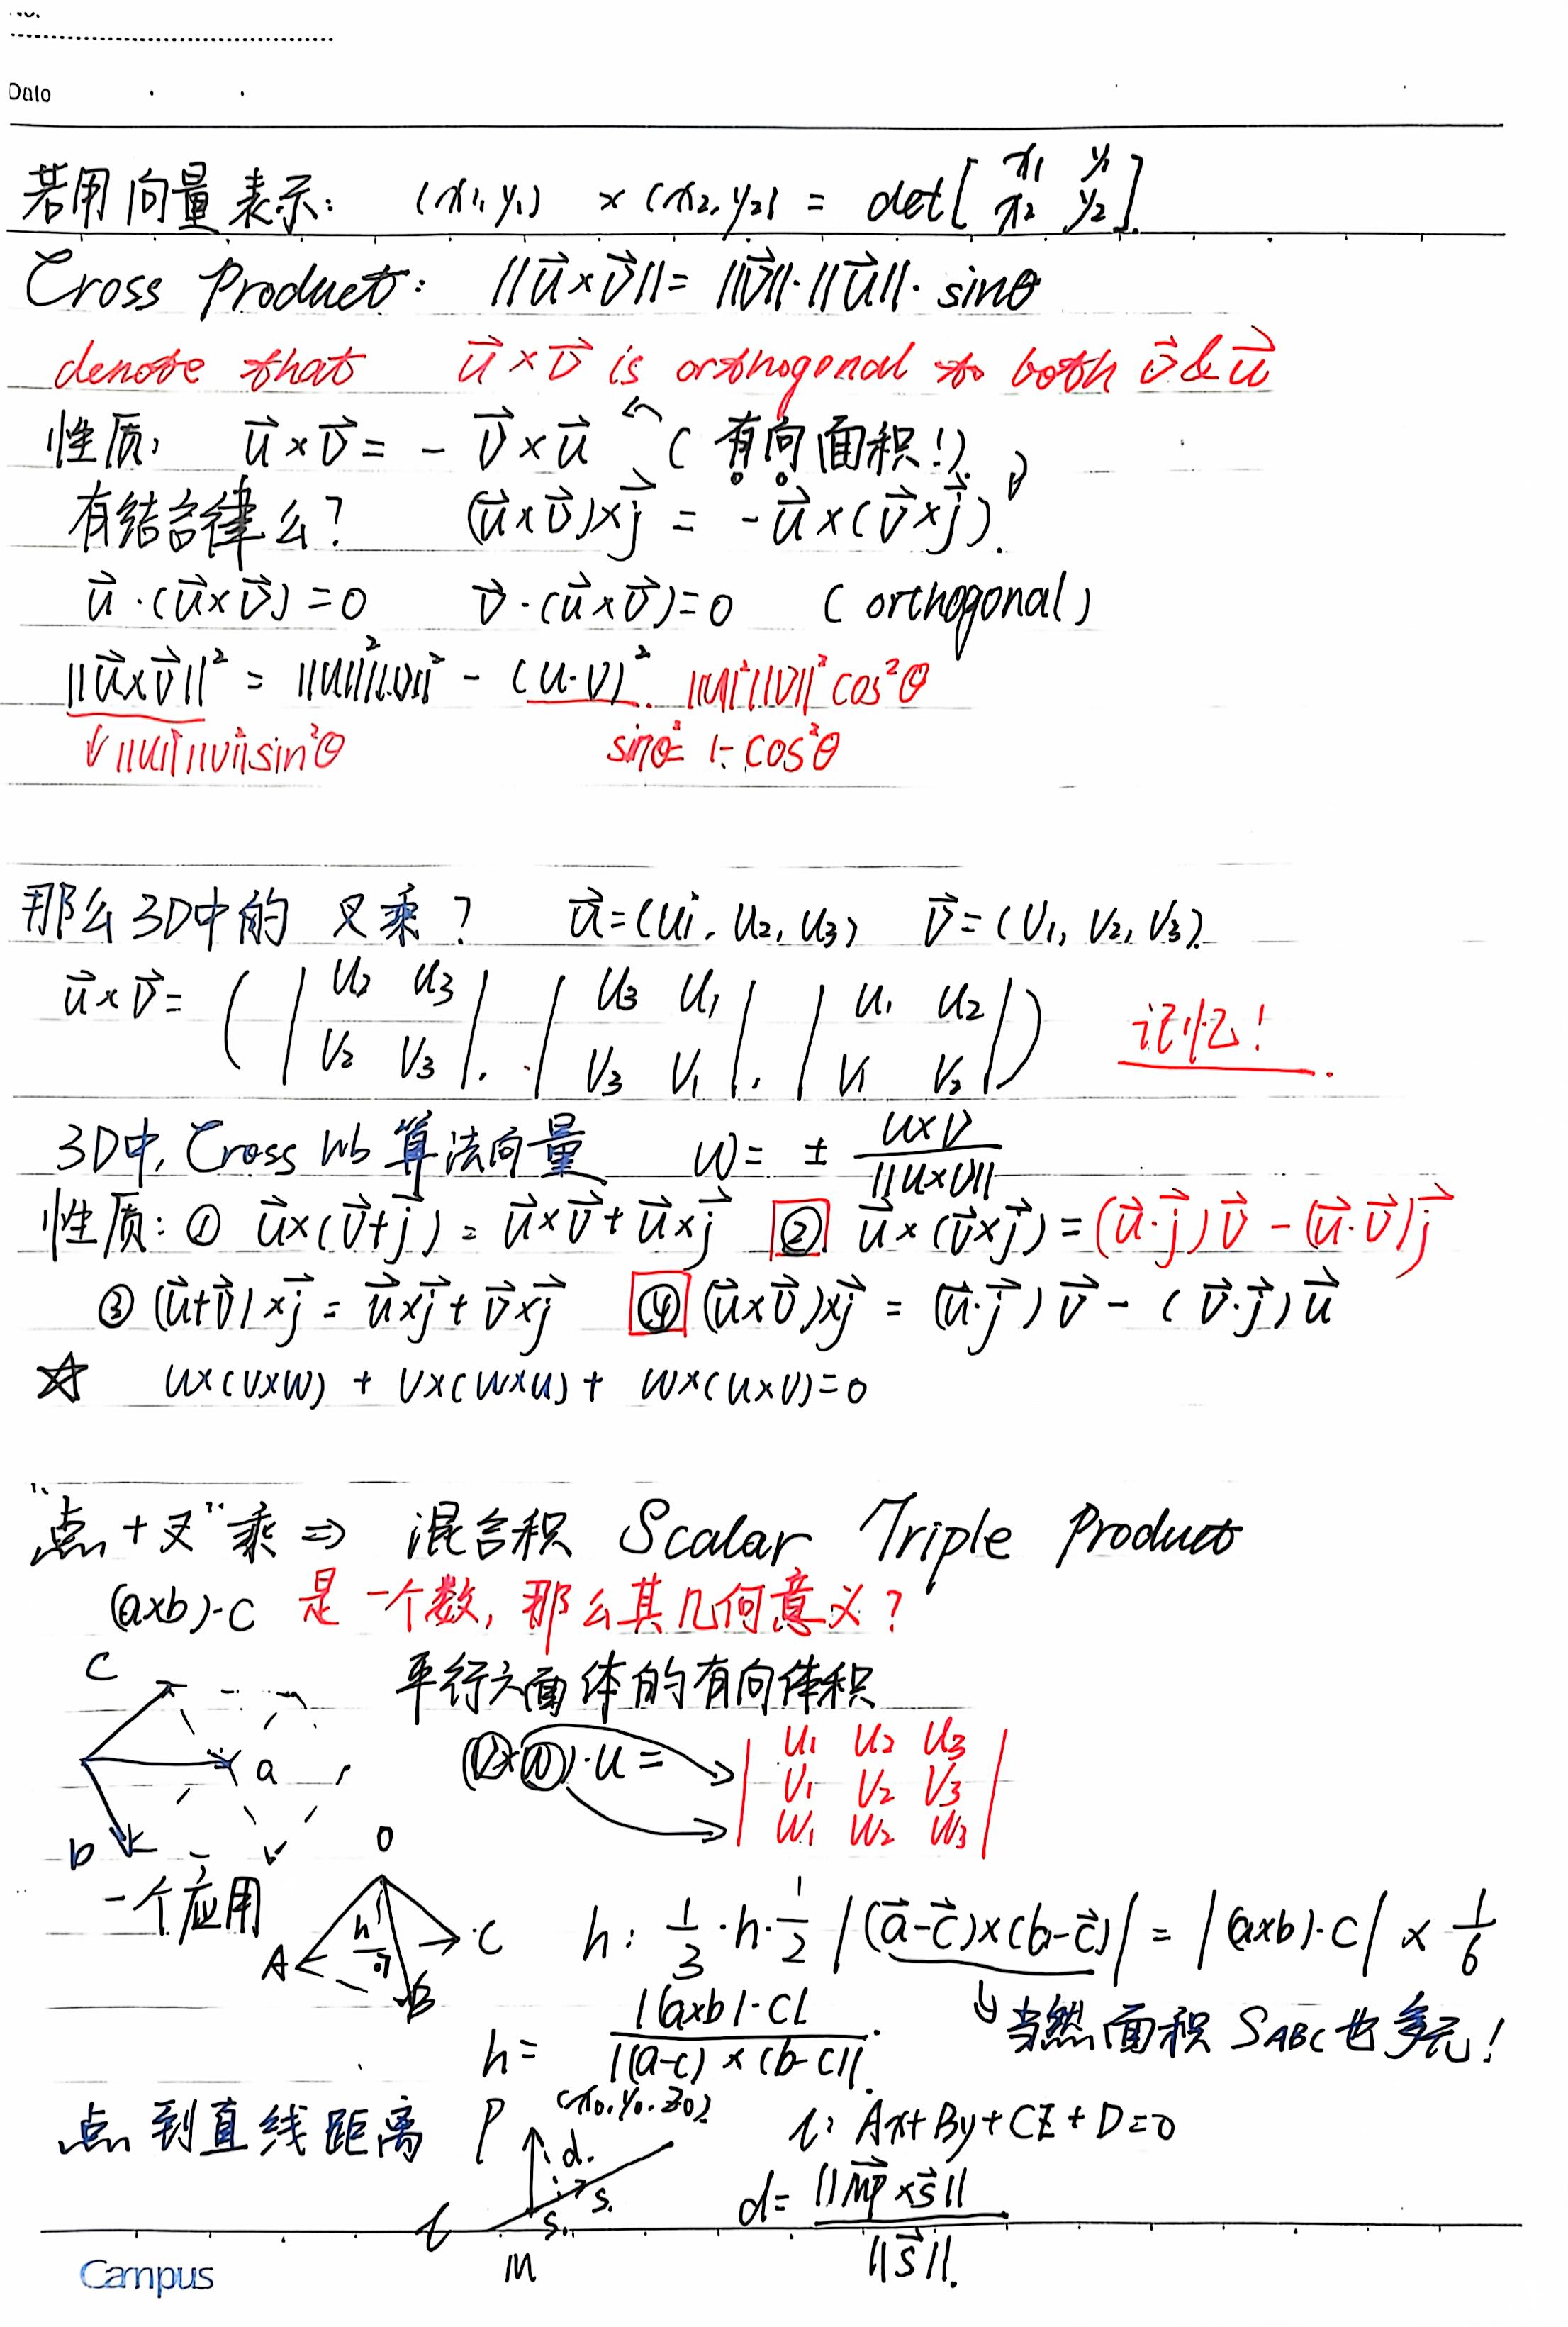 No.
Date
若用向量表示: (x₁,y₁) × (x₂,y₂) = det[ x₁ y₁
x₂ y₂ ]
Cross Product: ||u⃗×v⃗|| = ||v⃗||·||u⃗||·sinθ
denote that u⃗×v⃗ is orthogonal to both v⃗ & u⃗
性质: u⃗×v⃗ = - v⃗×u⃗ (有向面积!)
有结合律么? (u⃗×v⃗)×j⃗ = -u⃗×(v⃗×j⃗).
u⃗·(u⃗×v⃗)=0 v⃗·(u⃗×v⃗)=0 (orthogonal)
||u⃗×v⃗||² = ||u||²||v||² - (u·v)² ||u||²||v||²cos²θ
||u||²||v||²sin²θ sin²θ = 1-cos²θ
那么3D中的 叉乘? u⃗=(u₁, u₂, u₃) v⃗=(v₁, v₂, v₃).
u⃗×v⃗ = ( | u₂ u₃ |, | u₃ u₁ |, | u₁ u₂ | )
v₂ v₃ v₃ v₁ v₁ v₂ 记忆!
3D中, Cross 算法向量 w = ± u×v / ||u×v||
性质: ① u⃗×(v⃗+j⃗) = u⃗×v⃗+u⃗×j⃗ ② u⃗×(v⃗×j⃗) = (u⃗·j⃗)v⃗ - (u⃗·v⃗)j⃗
③ (u⃗+v⃗)×j⃗ = u⃗×j⃗+v⃗×j⃗ ④ (u⃗×v⃗)×j⃗ = (u⃗·j⃗)v⃗ - (v⃗·j⃗)u⃗
☆ u×(v×w) + v×(w×u) + w×(u×v)=0
"点+叉"乘 ⇒ 混合积 Scalar Triple Product
(a×b)·c 是一个数, 那么其几何意义?
平行六面体的有向体积
c
a
b
(v×w)·u = | u₁ u₂ u₃ |
v₁ v₂ v₃
w₁ w₂ w₃
一个应用
O
A
B
C
h
h: 1/3·h·1/2 |(a⃗-c⃗)×(b-c⃗)| = |(a×b)·c| × 1/6
当然面积 S_ABC 也多元!
h = |(a×b)·c| / |(a-c)×(b-c)|.
点到直线距离 P (x₀,y₀,z₀) l: Ax+By+Cz+D=0
d.
s.
s.
l
M
d = ||MP⃗×s⃗|| / ||s⃗||.
Campus